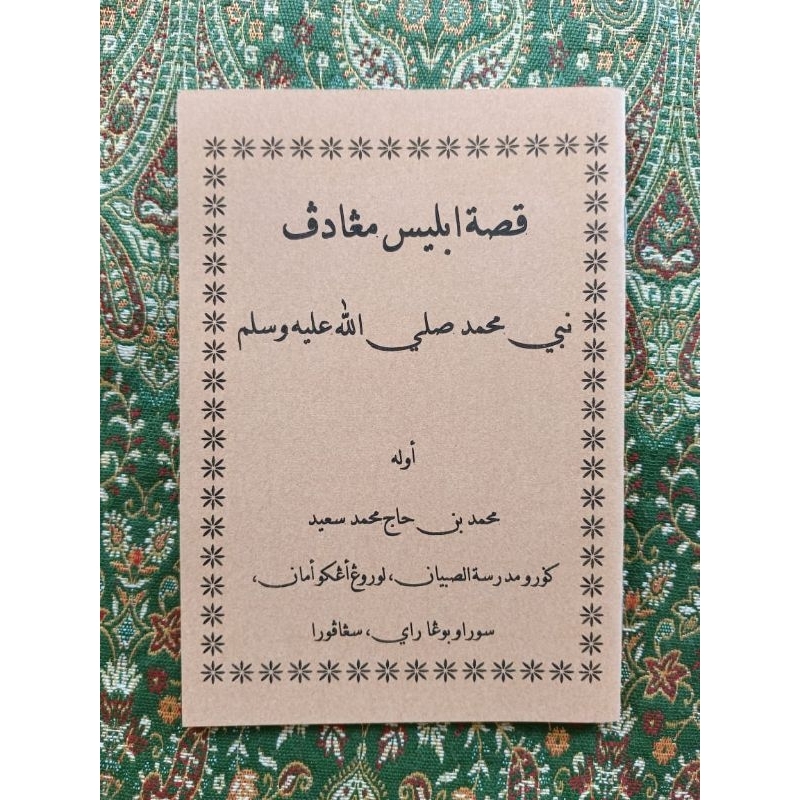 قصة ابليس مڠادڤ
نبي محمد صلي الله عليه وسلم
أوله
محمد بن حاج محمد سعيد
ݢورو مدرسة الصبيان، لوروڠ أڠكو أمان،
سوراو بوڠا راي، سڠاڤورا